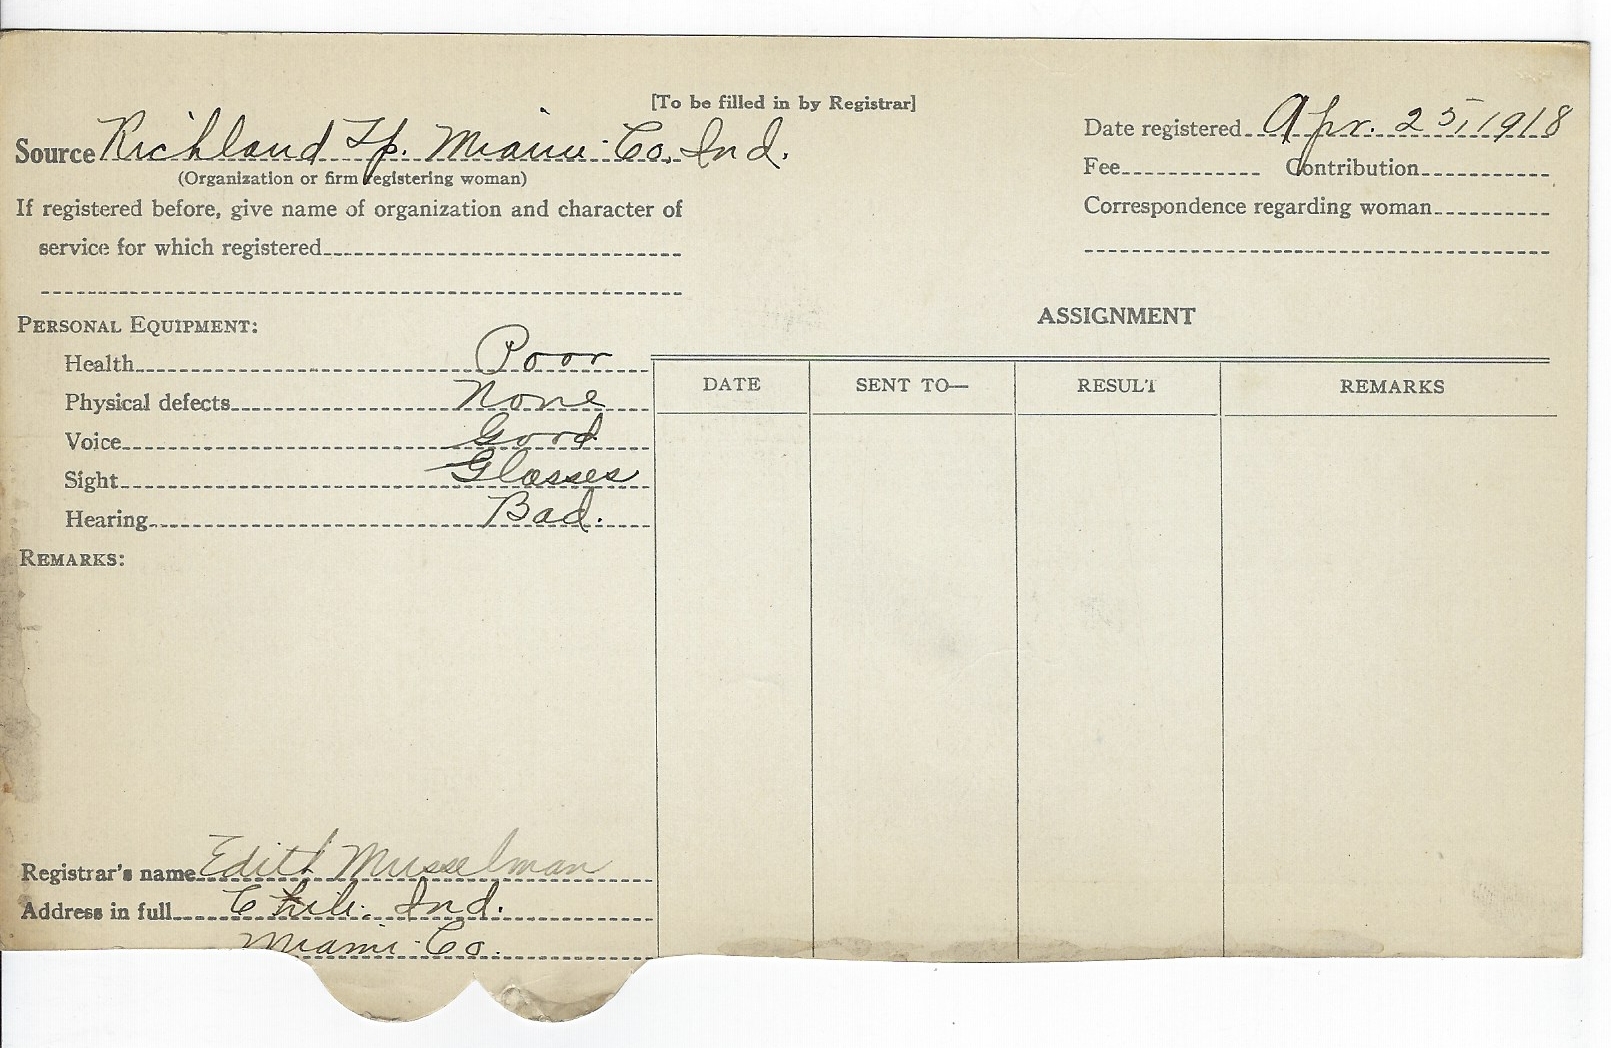 [To be filled in by Registrar]
Source Richland Tp. Miami Co. Ind.
(Organization or firm registering woman)
If registered before, give name of organization and character of
service for which registered
Date registered Apr. 25, 1918
Fee Contribution
Correspondence regarding woman
PERSONAL EQUIPMENT:
Health Poor
Physical defects None
Voice Good
Sight Glasses
Hearing Bad.
REMARKS:
ASSIGNMENT
DATE SENT TO— RESULT REMARKS
Registrar's name Edith Musselman
Address in full Chili. Ind.
Miami Co.